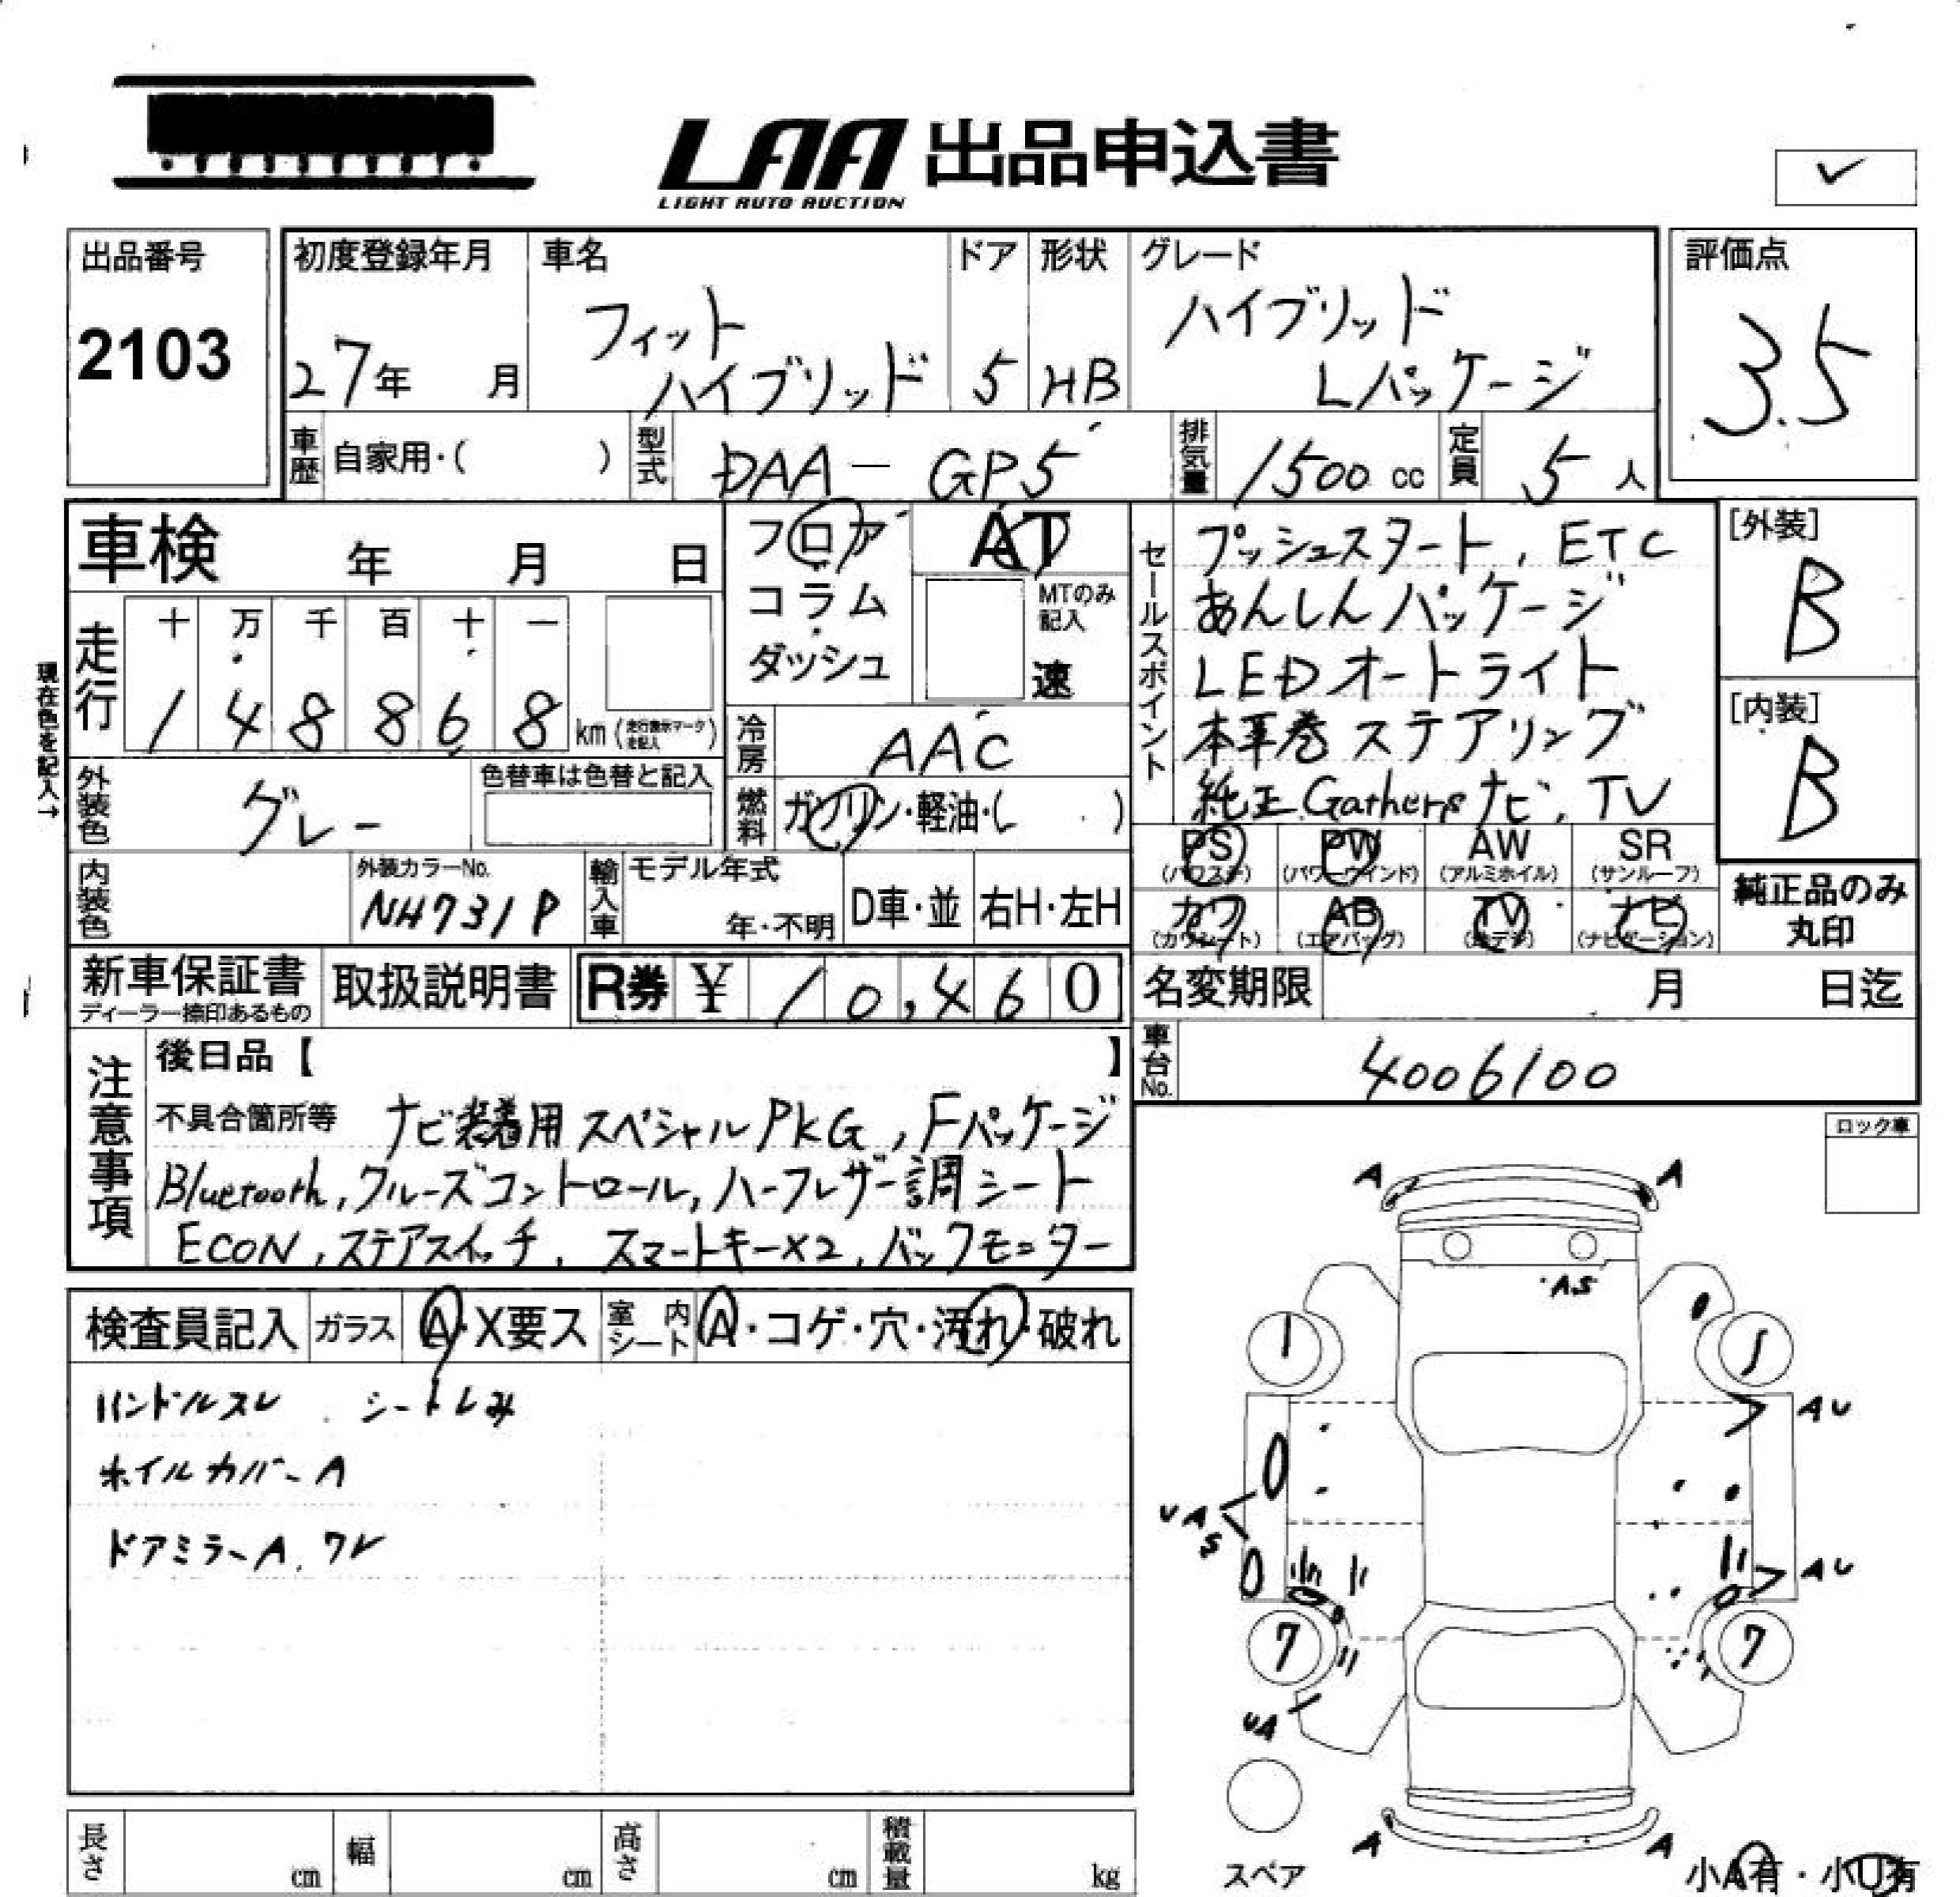 LAA 出品申込書
LIGHT AUTO AUCTION
出品番号
2103
初度登録年月
27年 月
車名
フィット
ハイブリッド
ドア
5
形状
HB
グレード
ハイブリッド
Lパッケージ
評価点
3.5
車歴 自家用・( )
型式 DAA-GP5
排気量 1500 cc
定員 5 人
車検 年 月 日
フロア
コラム
ダッシュ
AT
MTのみ
記入
速
セールスポイント
プッシュスタート, ETC
あんしんパッケージ
LEDオートライト
本革巻ステアリング
純正Gathersナビ, TV
[外装]
B
[内装]
B
現在色を記入→
走行
十 万 千 百 十 一
1 4 8 8 6 8 km (走行表示マーク
を記入)
冷房 AAC
外装色 グレー
色替車は色替と記入
燃料 ガソリン・軽油・( )
PS
(パワステ)
PW
(パワーウインド)
AW
(アルミホイル)
SR
(サンルーフ)
カワ
(カワシート)
AB
(エアバッグ)
TV
(地デジ)
ナビ
(ナビゲーション)
純正品のみ
丸印
内装色
外装カラーNo.
NH731P
輸入車
モデル年式
年・不明
D車・並
右H・左H
新車保証書
ディーラー捺印あるもの
取扱説明書
R券 ¥ 10,460
名変期限 月 日迄
車台No. 4006100
注意事項
後日品【 】
不具合箇所等 ナビ装着用スペシャルPKG, Fパッケージ
Bluetooth, クルーズコントロール, ハーフレザー調シート
ECON, ステアスイッチ, スマートキー×2, バックモニター
ロック車
検査員記入
ガラス
A・X要ス
室内
シート
A・コゲ・穴・汚れ・破れ
ハンドルスレ シートシみ
ホイルカバーA
ドアミラーA, ワレ
A A
A.S
AU
UA
S
AU
7 7
UA
A A
スペア
小A有・小U有
長さ cm
幅 cm
高さ cm
積載量 kg